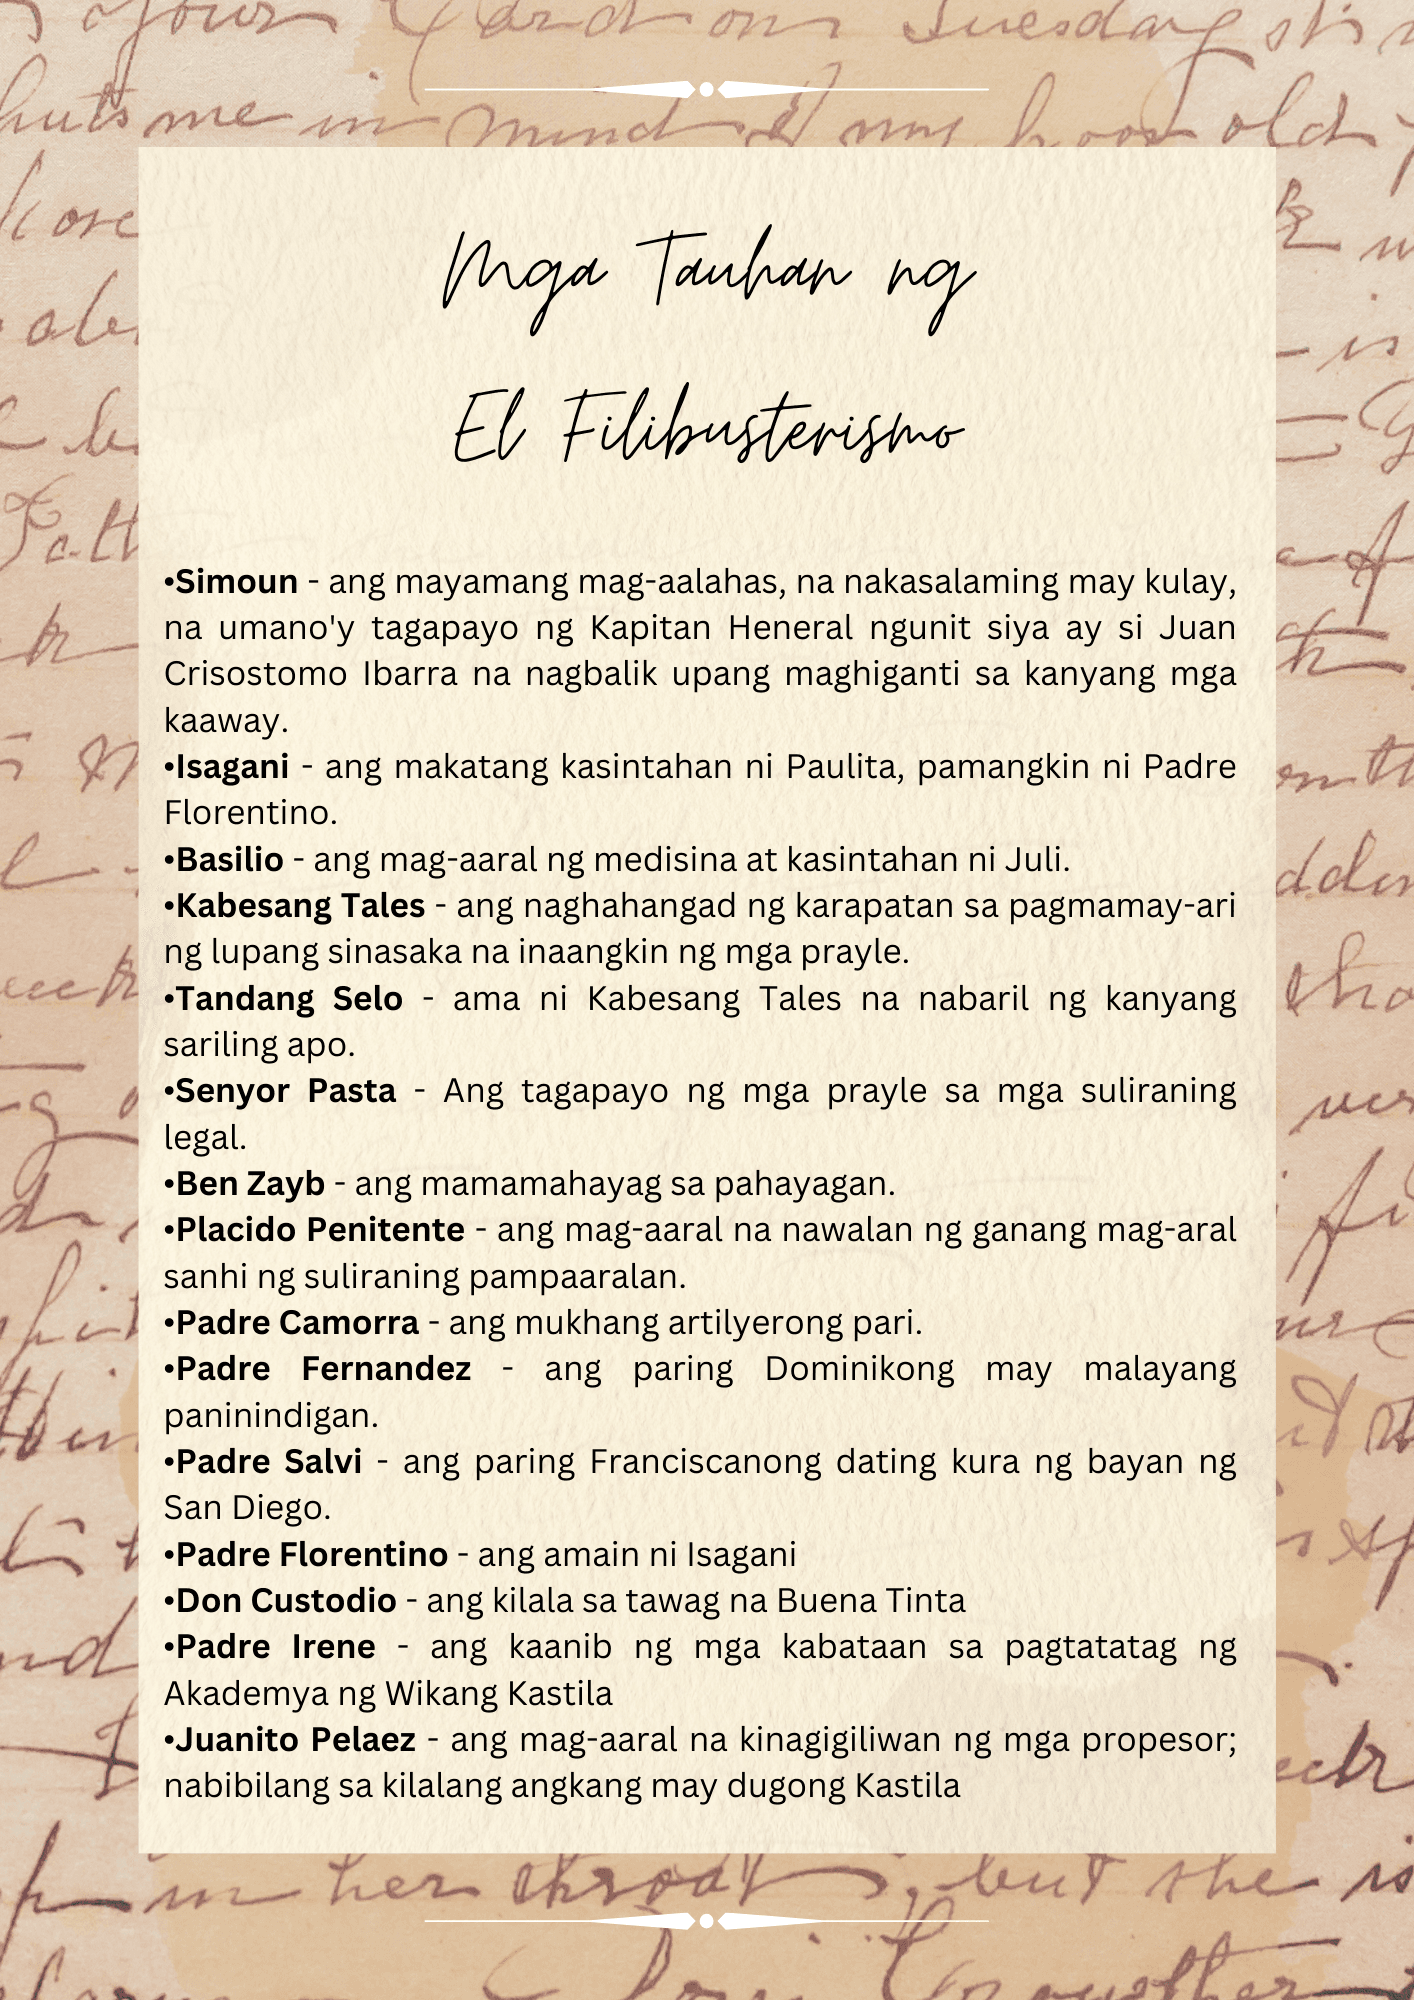 Mga Tauhan ng
El Filibusterismo
•Simoun - ang mayamang mag-aalahas, na nakasalaming may kulay,
na umano'y tagapayo ng Kapitan Heneral ngunit siya ay si Juan
Crisostomo Ibarra na nagbalik upang maghiganti sa kanyang mga
kaaway.
•Isagani - ang makatang kasintahan ni Paulita, pamangkin ni Padre
Florentino.
•Basilio - ang mag-aaral ng medisina at kasintahan ni Juli.
•Kabesang Tales - ang naghahangad ng karapatan sa pagmamay-ari
ng lupang sinasaka na inaangkin ng mga prayle.
•Tandang Selo - ama ni Kabesang Tales na nabaril ng kanyang
sariling apo.
•Senyor Pasta - Ang tagapayo ng mga prayle sa mga suliraning
legal.
•Ben Zayb - ang mamamahayag sa pahayagan.
•Placido Penitente - ang mag-aaral na nawalan ng ganang mag-aral
sanhi ng suliraning pampaaralan.
•Padre Camorra - ang mukhang artilyerong pari.
•Padre Fernandez - ang paring Dominikong may malayang
paninindigan.
•Padre Salvi - ang paring Franciscanong dating kura ng bayan ng
San Diego.
•Padre Florentino - ang amain ni Isagani
•Don Custodio - ang kilala sa tawag na Buena Tinta
•Padre Irene - ang kaanib ng mga kabataan sa pagtatatag ng
Akademya ng Wikang Kastila
•Juanito Pelaez - ang mag-aaral na kinagigiliwan ng mga propesor;
nabibilang sa kilalang angkang may dugong Kastila